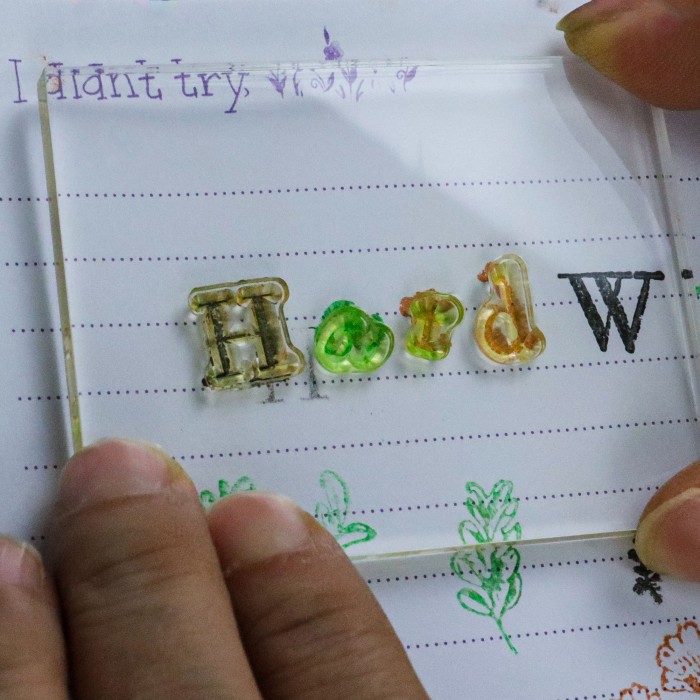 I didnt try,
Hard W